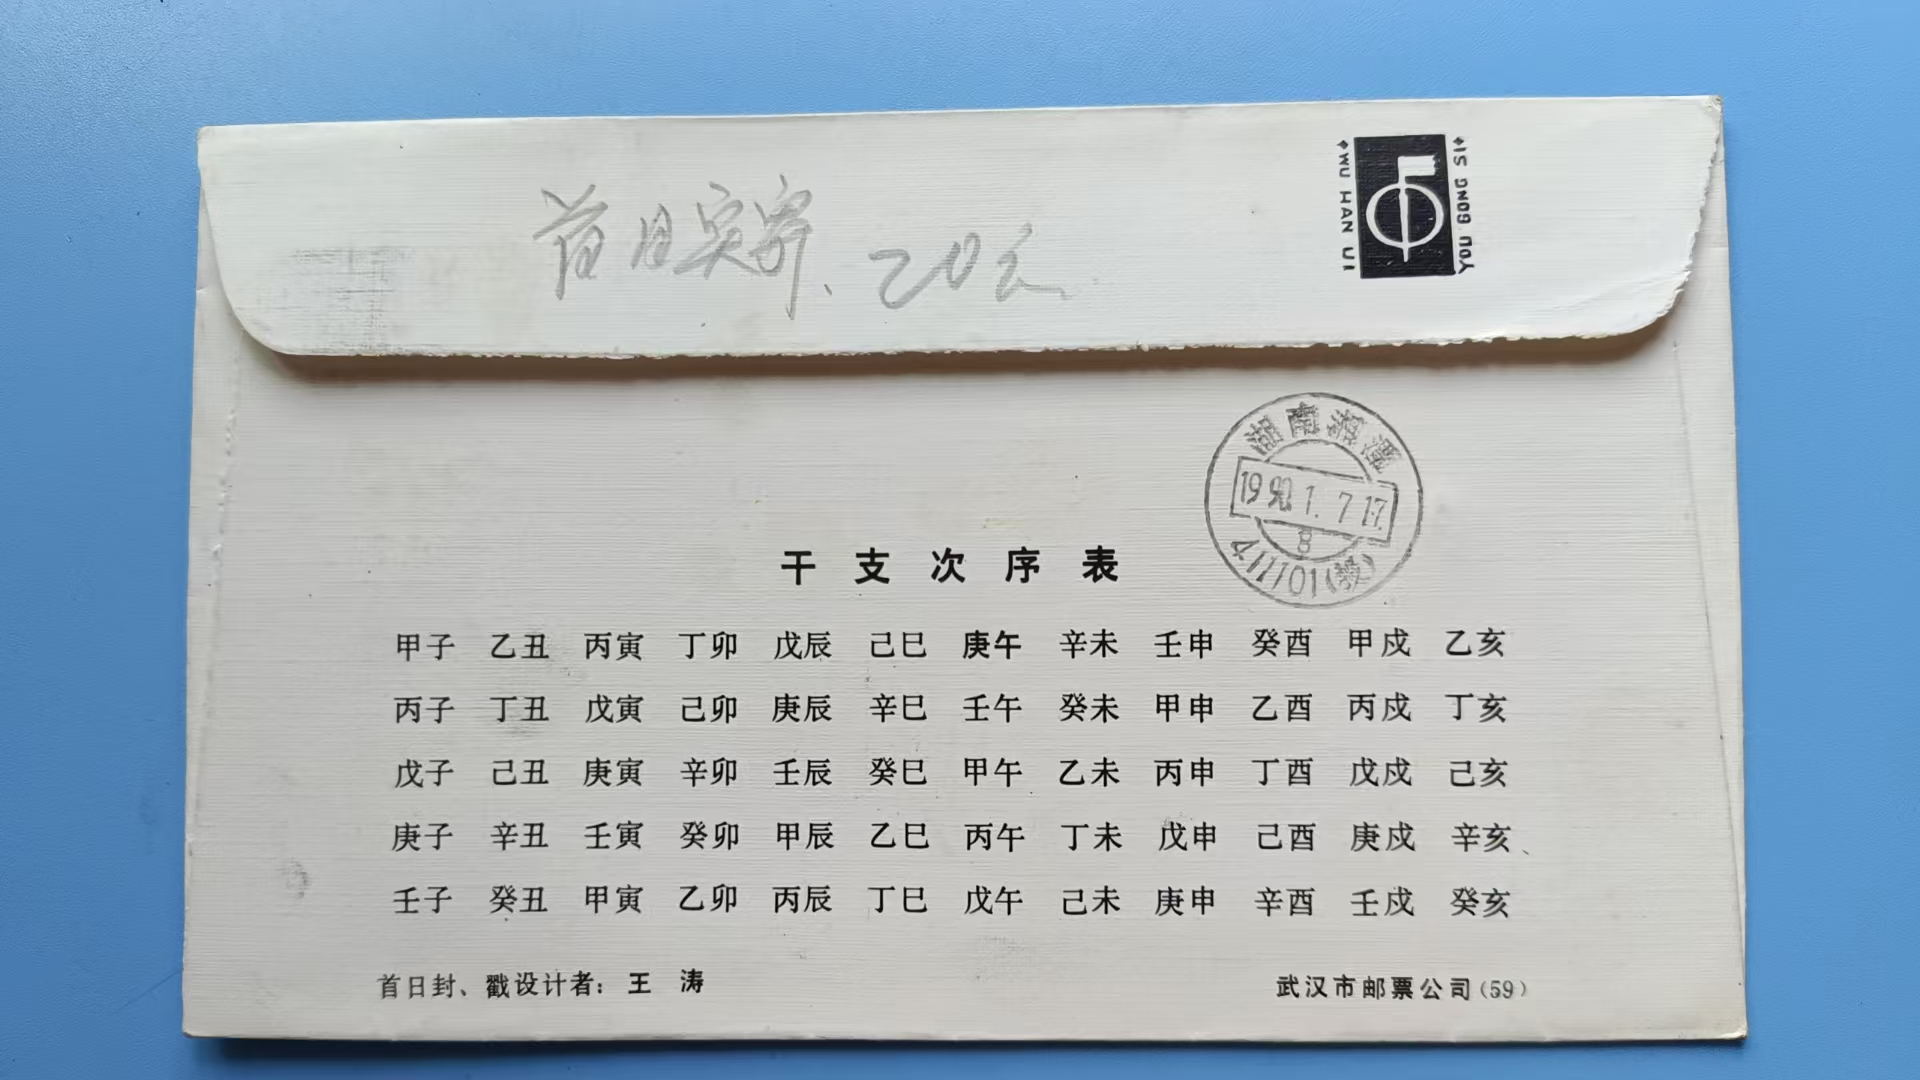 首日实寄、20元
WU HAN UI
YOU GONG SI
湖南湘潭
1990.1.7.17
8
411101(投)
干支次序表
甲子 乙丑 丙寅 丁卯 戊辰 己巳 庚午 辛未 壬申 癸酉 甲戍 乙亥
丙子 丁丑 戊寅 己卯 庚辰 辛巳 壬午 癸未 甲申 乙酉 丙戍 丁亥
戊子 己丑 庚寅 辛卯 壬辰 癸巳 甲午 乙未 丙申 丁酉 戊戍 己亥
庚子 辛丑 壬寅 癸卯 甲辰 乙巳 丙午 丁未 戊申 己酉 庚戍 辛亥
壬子 癸丑 甲寅 乙卯 丙辰 丁巳 戊午 己未 庚申 辛酉 壬戍 癸亥
首日封、戳设计者：王 涛
武汉市邮票公司(59)